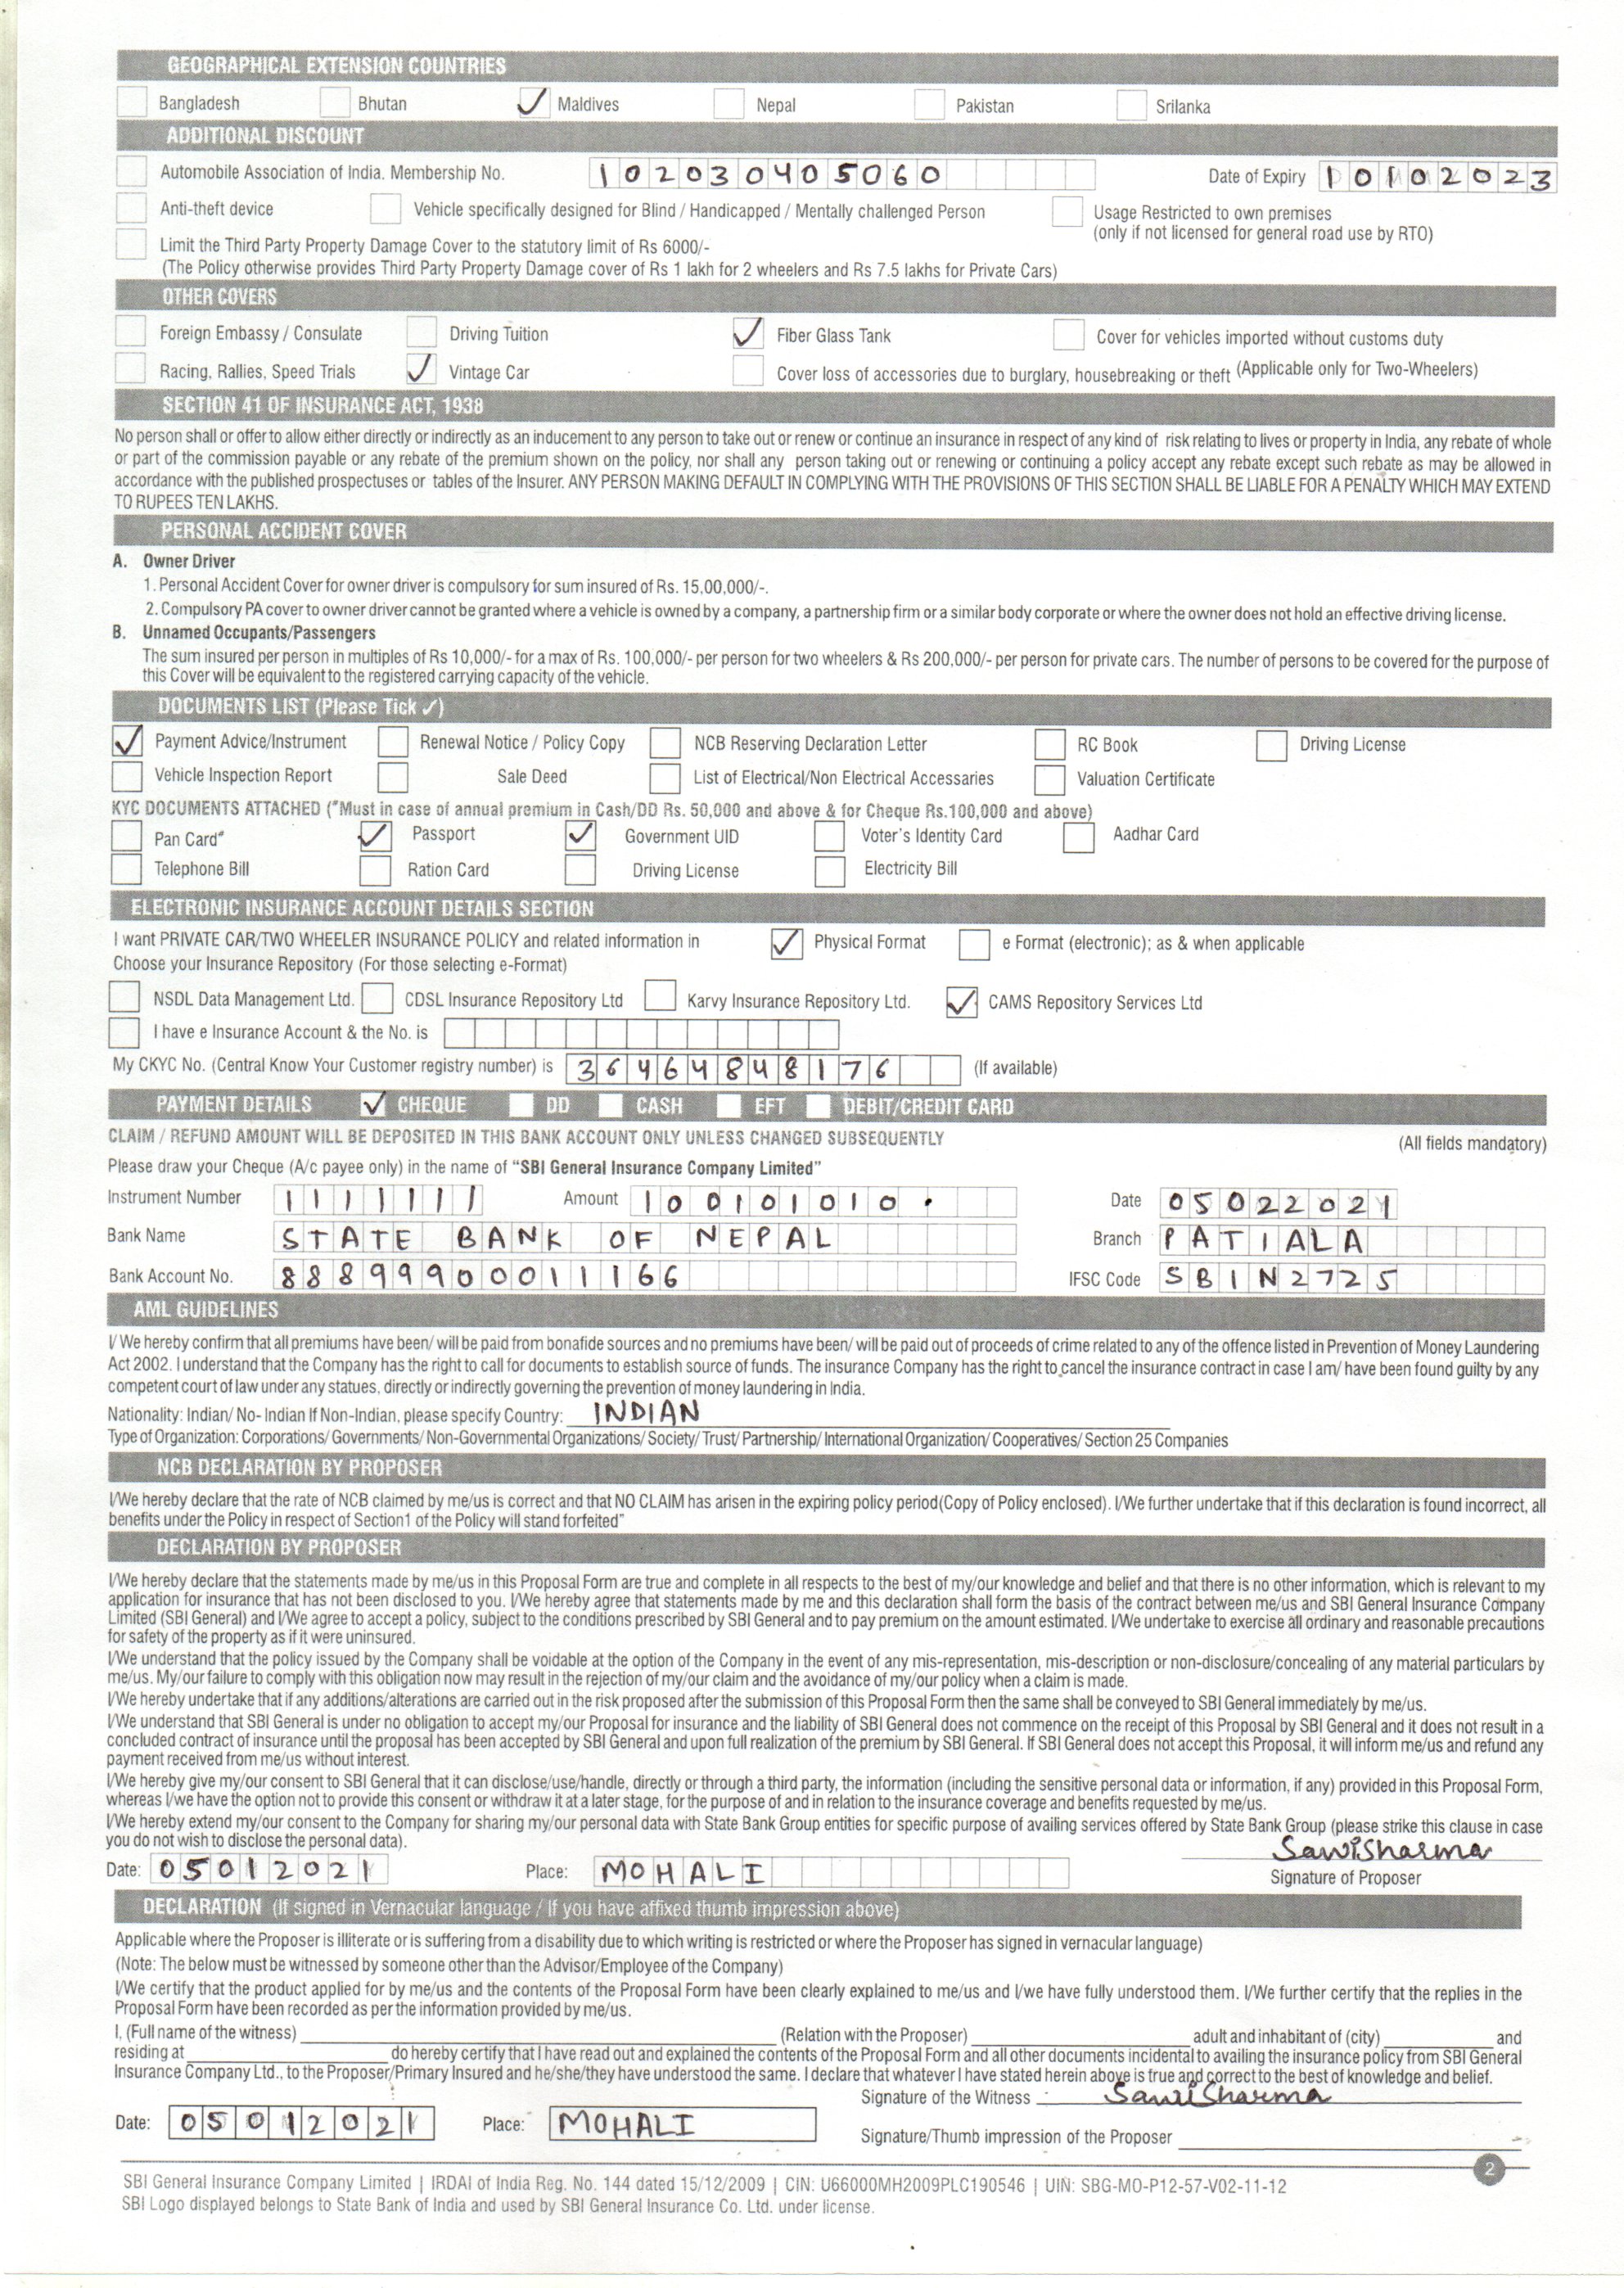 GEOGRAPHICAL EXTENSION COUNTRIES
Bangladesh Bhutan ✓ Maldives Nepal Pakistan Srilanka
ADDITIONAL DISCOUNT
Automobile Association of India. Membership No. 102030405060 Date of Expiry 10102023
Anti-theft device Vehicle specifically designed for Blind / Handicapped / Mentally challenged Person Usage Restricted to own premises
(only if not licensed for general road use by RTO)
Limit the Third Party Property Damage Cover to the statutory limit of Rs 6000/-
(The Policy otherwise provides Third Party Property Damage cover of Rs 1 lakh for 2 wheelers and Rs 7.5 lakhs for Private Cars)
OTHER COVERS
Foreign Embassy / Consulate Driving Tuition ✓ Fiber Glass Tank Cover for vehicles imported without customs duty
Racing, Rallies, Speed Trials ✓ Vintage Car Cover loss of accessories due to burglary, housebreaking or theft (Applicable only for Two-Wheelers)
SECTION 41 OF INSURANCE ACT, 1938
No person shall or offer to allow either directly or indirectly as an inducement to any person to take out or renew or continue an insurance in respect of any kind of risk relating to lives or property in India, any rebate of whole
or part of the commission payable or any rebate of the premium shown on the policy, nor shall any person taking out or renewing or continuing a policy accept any rebate except such rebate as may be allowed in
accordance with the published prospectuses or tables of the Insurer. ANY PERSON MAKING DEFAULT IN COMPLYING WITH THE PROVISIONS OF THIS SECTION SHALL BE LIABLE FOR A PENALTY WHICH MAY EXTEND
TO RUPEES TEN LAKHS.
PERSONAL ACCIDENT COVER
A. Owner Driver
1. Personal Accident Cover for owner driver is compulsory for sum insured of Rs. 15,00,000/-.
2. Compulsory PA cover to owner driver cannot be granted where a vehicle is owned by a company, a partnership firm or a similar body corporate or where the owner does not hold an effective driving license.
B. Unnamed Occupants/Passengers
The sum insured per person in multiples of Rs 10,000/- for a max of Rs. 100,000/- per person for two wheelers & Rs 200,000/- per person for private cars. The number of persons to be covered for the purpose of
this Cover will be equivalent to the registered carrying capacity of the vehicle.
DOCUMENTS LIST (Please Tick ✓)
✓ Payment Advice/Instrument Renewal Notice / Policy Copy NCB Reserving Declaration Letter RC Book Driving License
Vehicle Inspection Report Sale Deed List of Electrical/Non Electrical Accessaries Valuation Certificate
KYC DOCUMENTS ATTACHED (*Must in case of annual premium in Cash/DD Rs. 50,000 and above & for Cheque Rs.100,000 and above)
Pan Card* ✓ Passport ✓ Government UID Voter's Identity Card Aadhar Card
Telephone Bill Ration Card Driving License Electricity Bill
ELECTRONIC INSURANCE ACCOUNT DETAILS SECTION
I want PRIVATE CAR/TWO WHEELER INSURANCE POLICY and related information in ✓ Physical Format e Format (electronic); as & when applicable
Choose your Insurance Repository (For those selecting e-Format)
NSDL Data Management Ltd. CDSL Insurance Repository Ltd Karvy Insurance Repository Ltd. ✓ CAMS Repository Services Ltd
I have e Insurance Account & the No. is
My CKYC No. (Central Know Your Customer registry number) is 36464848176 (If available)
PAYMENT DETAILS ✓ CHEQUE DD CASH EFT DEBIT/CREDIT CARD
CLAIM / REFUND AMOUNT WILL BE DEPOSITED IN THIS BANK ACCOUNT ONLY UNLESS CHANGED SUBSEQUENTLY (All fields mandatory)
Please draw your Cheque (A/c payee only) in the name of "SBI General Insurance Company Limited"
Instrument Number 1111111 Amount 100101010. Date 05022021
Bank Name STATE BANK OF NEPAL Branch PATIALA
Bank Account No. 888999900011166 IFSC Code SBIN2725
AML GUIDELINES
I/ We hereby confirm that all premiums have been/ will be paid from bonafide sources and no premiums have been/ will be paid out of proceeds of crime related to any of the offence listed in Prevention of Money Laundering
Act 2002. I understand that the Company has the right to call for documents to establish source of funds. The insurance Company has the right to cancel the insurance contract in case I am/ have been found guilty by any
competent court of law under any statues, directly or indirectly governing the prevention of money laundering in India.
Nationality: Indian/ No- Indian If Non-Indian, please specify Country: INDIAN
Type of Organization: Corporations/ Governments/ Non-Governmental Organizations/ Society/ Trust/ Partnership/ International Organization/ Cooperatives/ Section 25 Companies
NCB DECLARATION BY PROPOSER
I/We hereby declare that the rate of NCB claimed by me/us is correct and that NO CLAIM has arisen in the expiring policy period(Copy of Policy enclosed). I/We further undertake that if this declaration is found incorrect, all
benefits under the Policy in respect of Section1 of the Policy will stand forfeited"
DECLARATION BY PROPOSER
I/We hereby declare that the statements made by me/us in this Proposal Form are true and complete in all respects to the best of my/our knowledge and belief and that there is no other information, which is relevant to my
application for insurance that has not been disclosed to you. I/We hereby agree that statements made by me and this declaration shall form the basis of the contract between me/us and SBI General Insurance Company
Limited (SBI General) and I/We agree to accept a policy, subject to the conditions prescribed by SBI General and to pay premium on the amount estimated. I/We undertake to exercise all ordinary and reasonable precautions
for safety of the property as if it were uninsured.
I/We understand that the policy issued by the Company shall be voidable at the option of the Company in the event of any mis-representation, mis-description or non-disclosure/concealing of any material particulars by
me/us. My/our failure to comply with this obligation now may result in the rejection of my/our claim and the avoidance of my/our policy when a claim is made.
I/We hereby undertake that if any additions/alterations are carried out in the risk proposed after the submission of this Proposal Form then the same shall be conveyed to SBI General immediately by me/us.
I/We understand that SBI General is under no obligation to accept my/our Proposal for insurance and the liability of SBI General does not commence on the receipt of this Proposal by SBI General and it does not result in a
concluded contract of insurance until the proposal has been accepted by SBI General and upon full realization of the premium by SBI General. If SBI General does not accept this Proposal, it will inform me/us and refund any
payment received from me/us without interest.
I/We hereby give my/our consent to SBI General that it can disclose/use/handle, directly or through a third party, the information (including the sensitive personal data or information, if any) provided in this Proposal Form,
whereas I/we have the option not to provide this consent or withdraw it at a later stage, for the purpose of and in relation to the insurance coverage and benefits requested by me/us.
I/We hereby extend my/our consent to the Company for sharing my/our personal data with State Bank Group entities for specific purpose of availing services offered by State Bank Group (please strike this clause in case
you do not wish to disclose the personal data). Sharma
Date: 05012021 Place: MOHALI Signature of Proposer
DECLARATION (If signed in Vernacular language / If you have affixed thumb impression above)
Applicable where the Proposer is illiterate or is suffering from a disability due to which writing is restricted or where the Proposer has signed in vernacular language)
(Note: The below must be witnessed by someone other than the Advisor/Employee of the Company)
I/We certify that the product applied for by me/us and the contents of the Proposal Form have been clearly explained to me/us and I/we have fully understood them. I/We further certify that the replies in the
Proposal Form have been recorded as per the information provided by me/us.
I, (Full name of the witness) (Relation with the Proposer) adult and inhabitant of (city) and
residing at do hereby certify that I have read out and explained the contents of the Proposal Form and all other documents incidental to availing the insurance policy from SBI General
Insurance Company Ltd., to the Proposer/Primary Insured and he/she/they have understood the same. I declare that whatever I have stated herein above is true and correct to the best of knowledge and belief.
Signature of the Witness Sharma
Date: 05012021 Place: MOHALI Signature/Thumb impression of the Proposer
2
SBI General Insurance Company Limited | IRDAI of India Reg. No. 144 dated 15/12/2009 | CIN: U66000MH2009PLC190546 | UIN: SBG-MO-P12-57-V02-11-12
SBI Logo displayed belongs to State Bank of India and used by SBI General Insurance Co. Ltd. under license.